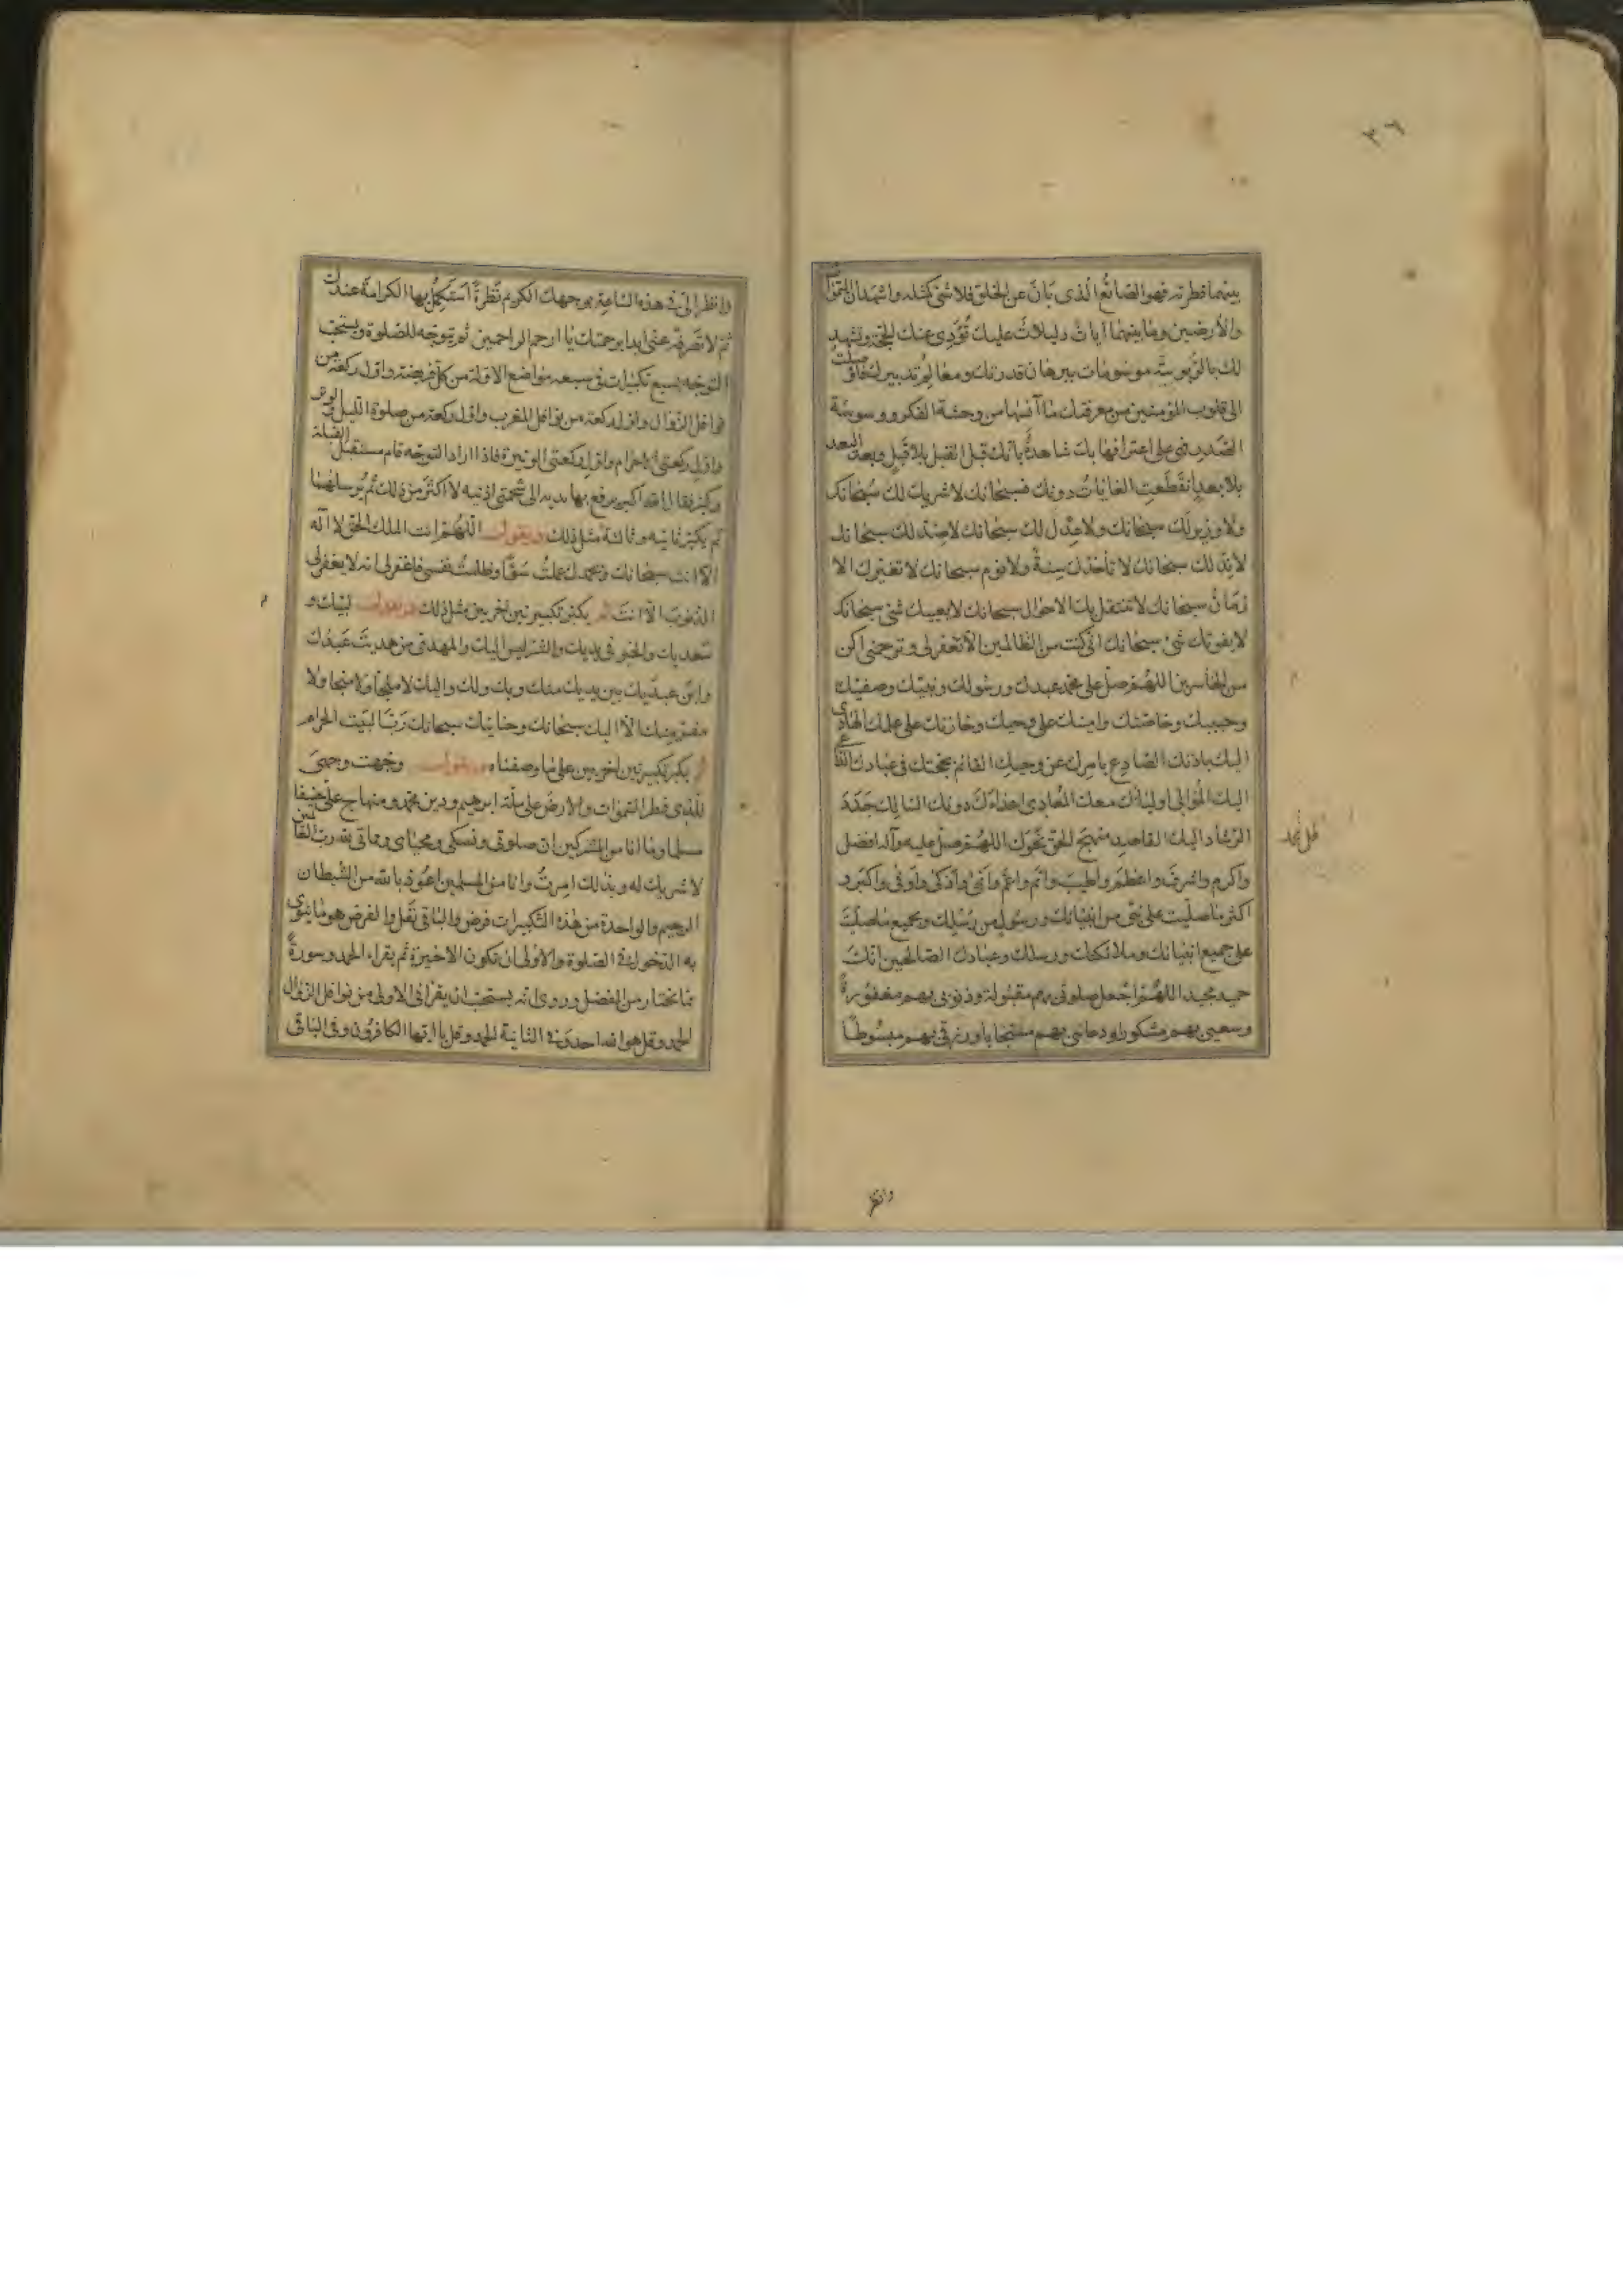 ٣٦
بينهما فطرته فهو الصانع الذى بان عن الخلق فلا شئ كمثله واشهد ان السموات
والارضين وما بينهما آيات دليلات عليك تؤدى عنك الحجة وتشهد
لك بالربوبية موسومات ببرهان قدرتك ومعالم تدبيرك فاوصلت
الى قلوب المؤمنين من معرفتك ما آنسها من وحشة الفكر ووسوسة
الصدر فهى على اعترافها بك شاهدة بانك قبل القبل بلا قبل وبعد البعد
بلا بعد انقطعت الغايات دونك فسبحانك لا شريك لك سبحانك
ولا وزير لك سبحانك ولا عدل لك سبحانك لا ضد لك سبحانك
لا ند لك سبحانك لا تأخذك سنة ولا نوم سبحانك لا تغيرك الا
زمان سبحانك لا تنتقل بك الاحوال سبحانك لا يعييك شئ سبحانك
لا يفوتك شئ سبحانك انى كنت من الظالمين الا تغفر لى وترحمنى اكن
من الخاسرين اللهم صل على محمد عبدك ورسولك ونبيك وصفيك
وحبيبك وخاصتك وامينك على وحيك وخازنك على علمك الهادى
اليك باذنك الصادع بامرك عن وحيك القائم بحجتك فى عبادك الداعى
اليك الموالى اوليائك معك المعادى اعداءك دونك السالك جدد
الرشاد اليك القاصد منهج الحق نحوك اللهم صل عليه وآله افضل
واكرم واشرف واعظم واطيب واتم واعم وانمى وازكى واوفى واكبر و
اكثر ما صليت على نبى من انبيائك ورسول من رسلك وبجميع ما صليت
على جميع انبيائك وملائكتك ورسلك وعبادك الصالحين انك
حميد مجيد اللهم اجعل صلوتى بهم مقبولة وذنوبى بهم مغفورة
وسعيى بهم مشكورا ودعائى بهم مستجابا ورزقى بهم مبسوطا
وانظر
وانظر الى فى هذه الساعة بوجهك الكريم نظرة استكمل بها الكرامة عندك
ثم لا تصرفه عنى ابدا برحمتك يا ارحم الراحمين ثم توجه للصلوة ويستحب
التوجه بسبع تكبيرات فى سبعة مواضع الاولة من كل فريضة واول ركعة من
نوافل الزوال واول ركعة من نوافل المغرب واول ركعة من صلوة الليل والوتر
واول ركعتى الاحرام واول ركعتى الوتيرة فاذا اراد التوجه قام مستقبل القبلة
وكبر فقال الله اكبر يرفع بها يديه الى شحمتى اذنيه لا اكثر من ذلك ثم يرسلهما
ثم يكبر ثانية وثالثة مثل ذلك ويقول اللهم انت الملك الحق لا اله
الا انت سبحانك وبحمدك عملت سوءا وظلمت نفسى فاغفر لى انه لا يغفر لى
الذنوب الا انت ثم يكبر تكبيرتين اخريين مثل ذلك ويقول لبيك و
سعديك والخير فى يديك والشر ليس اليك والمهدى من هديت عبدك
وابن عبديك بين يديك منك وبك ولك واليك لا ملجأ ولا منجا ولا
مفر منك الا اليك سبحانك وحنانيك سبحانك رب البيت الحرام
ثم يكبر تكبيرتين اخريين على ما وصفناه ويقول وجهت وجهى
للذى فطر السموات والارض على ملة ابرهيم ودين محمد ومنهاج على حنيفا
مسلما وما انا من المشركين ان صلوتى ونسكى ومحياى ومماتى لله رب العالمين
لا شريك له وبذلك امرت وانا من المسلمين اعوذ بالله من الشيطان
الرجيم والواحدة من هذه التكبيرات فرض والباقى نفل والفرض هو ما ينوى
به الدخول فى الصلوة والاولى ان تكون الاخيرة ثم يقراء الحمد وسورة
مما يختار من المفصل وروى انه يستحب ان يقرا فى الاولى من نوافل الزوال
الحمد وقل هو الله احد وفى الثانية الحمد وقل يا ايها الكافرون وفى الباقى